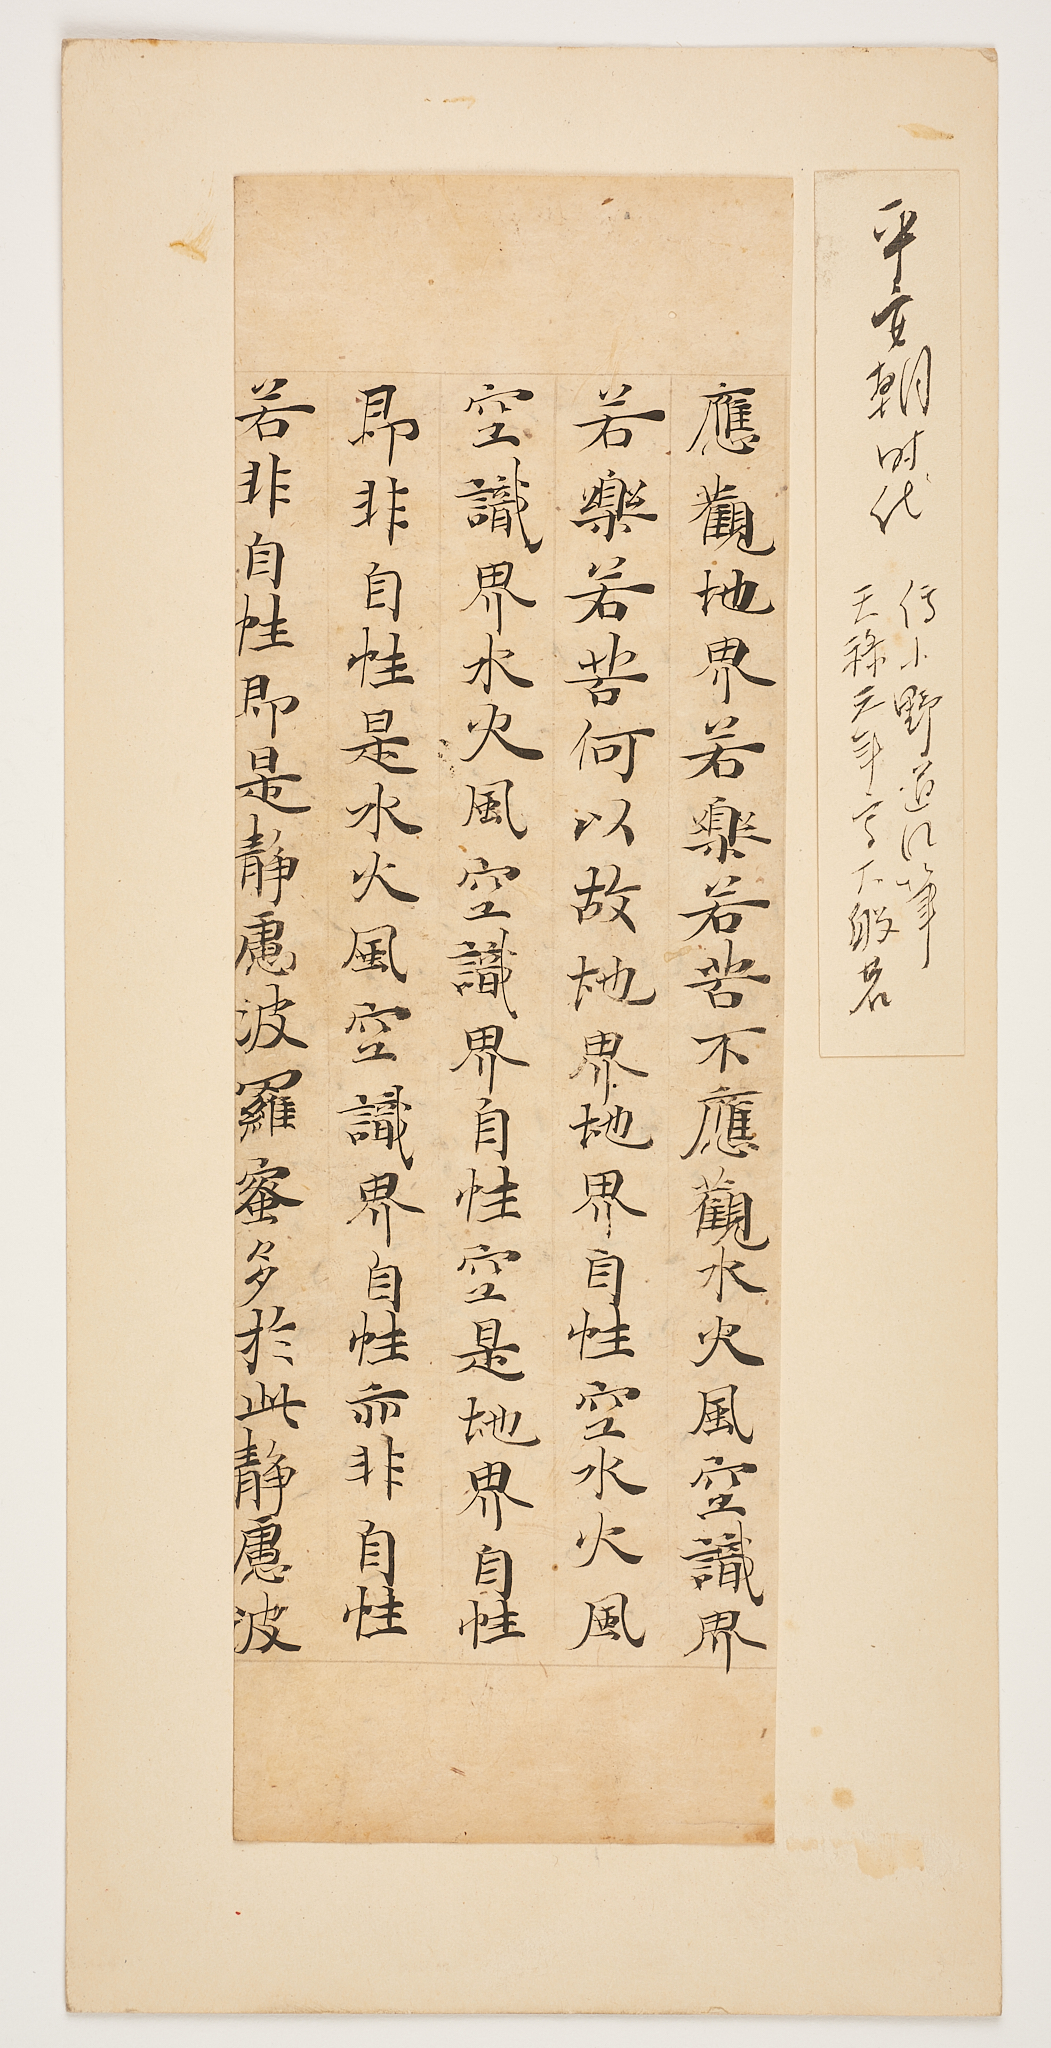 平安朝时代
傳小野道風筆
天禄元年写大般若
應觀地界若樂若苦不應觀水火風空識界
若樂若苦何以故地界地界自性空水火風
空識界水火風空識界自性空是地界自性
即非自性是水火風空識界自性亦非自性
若非自性即是静慮波羅蜜多於此静慮波